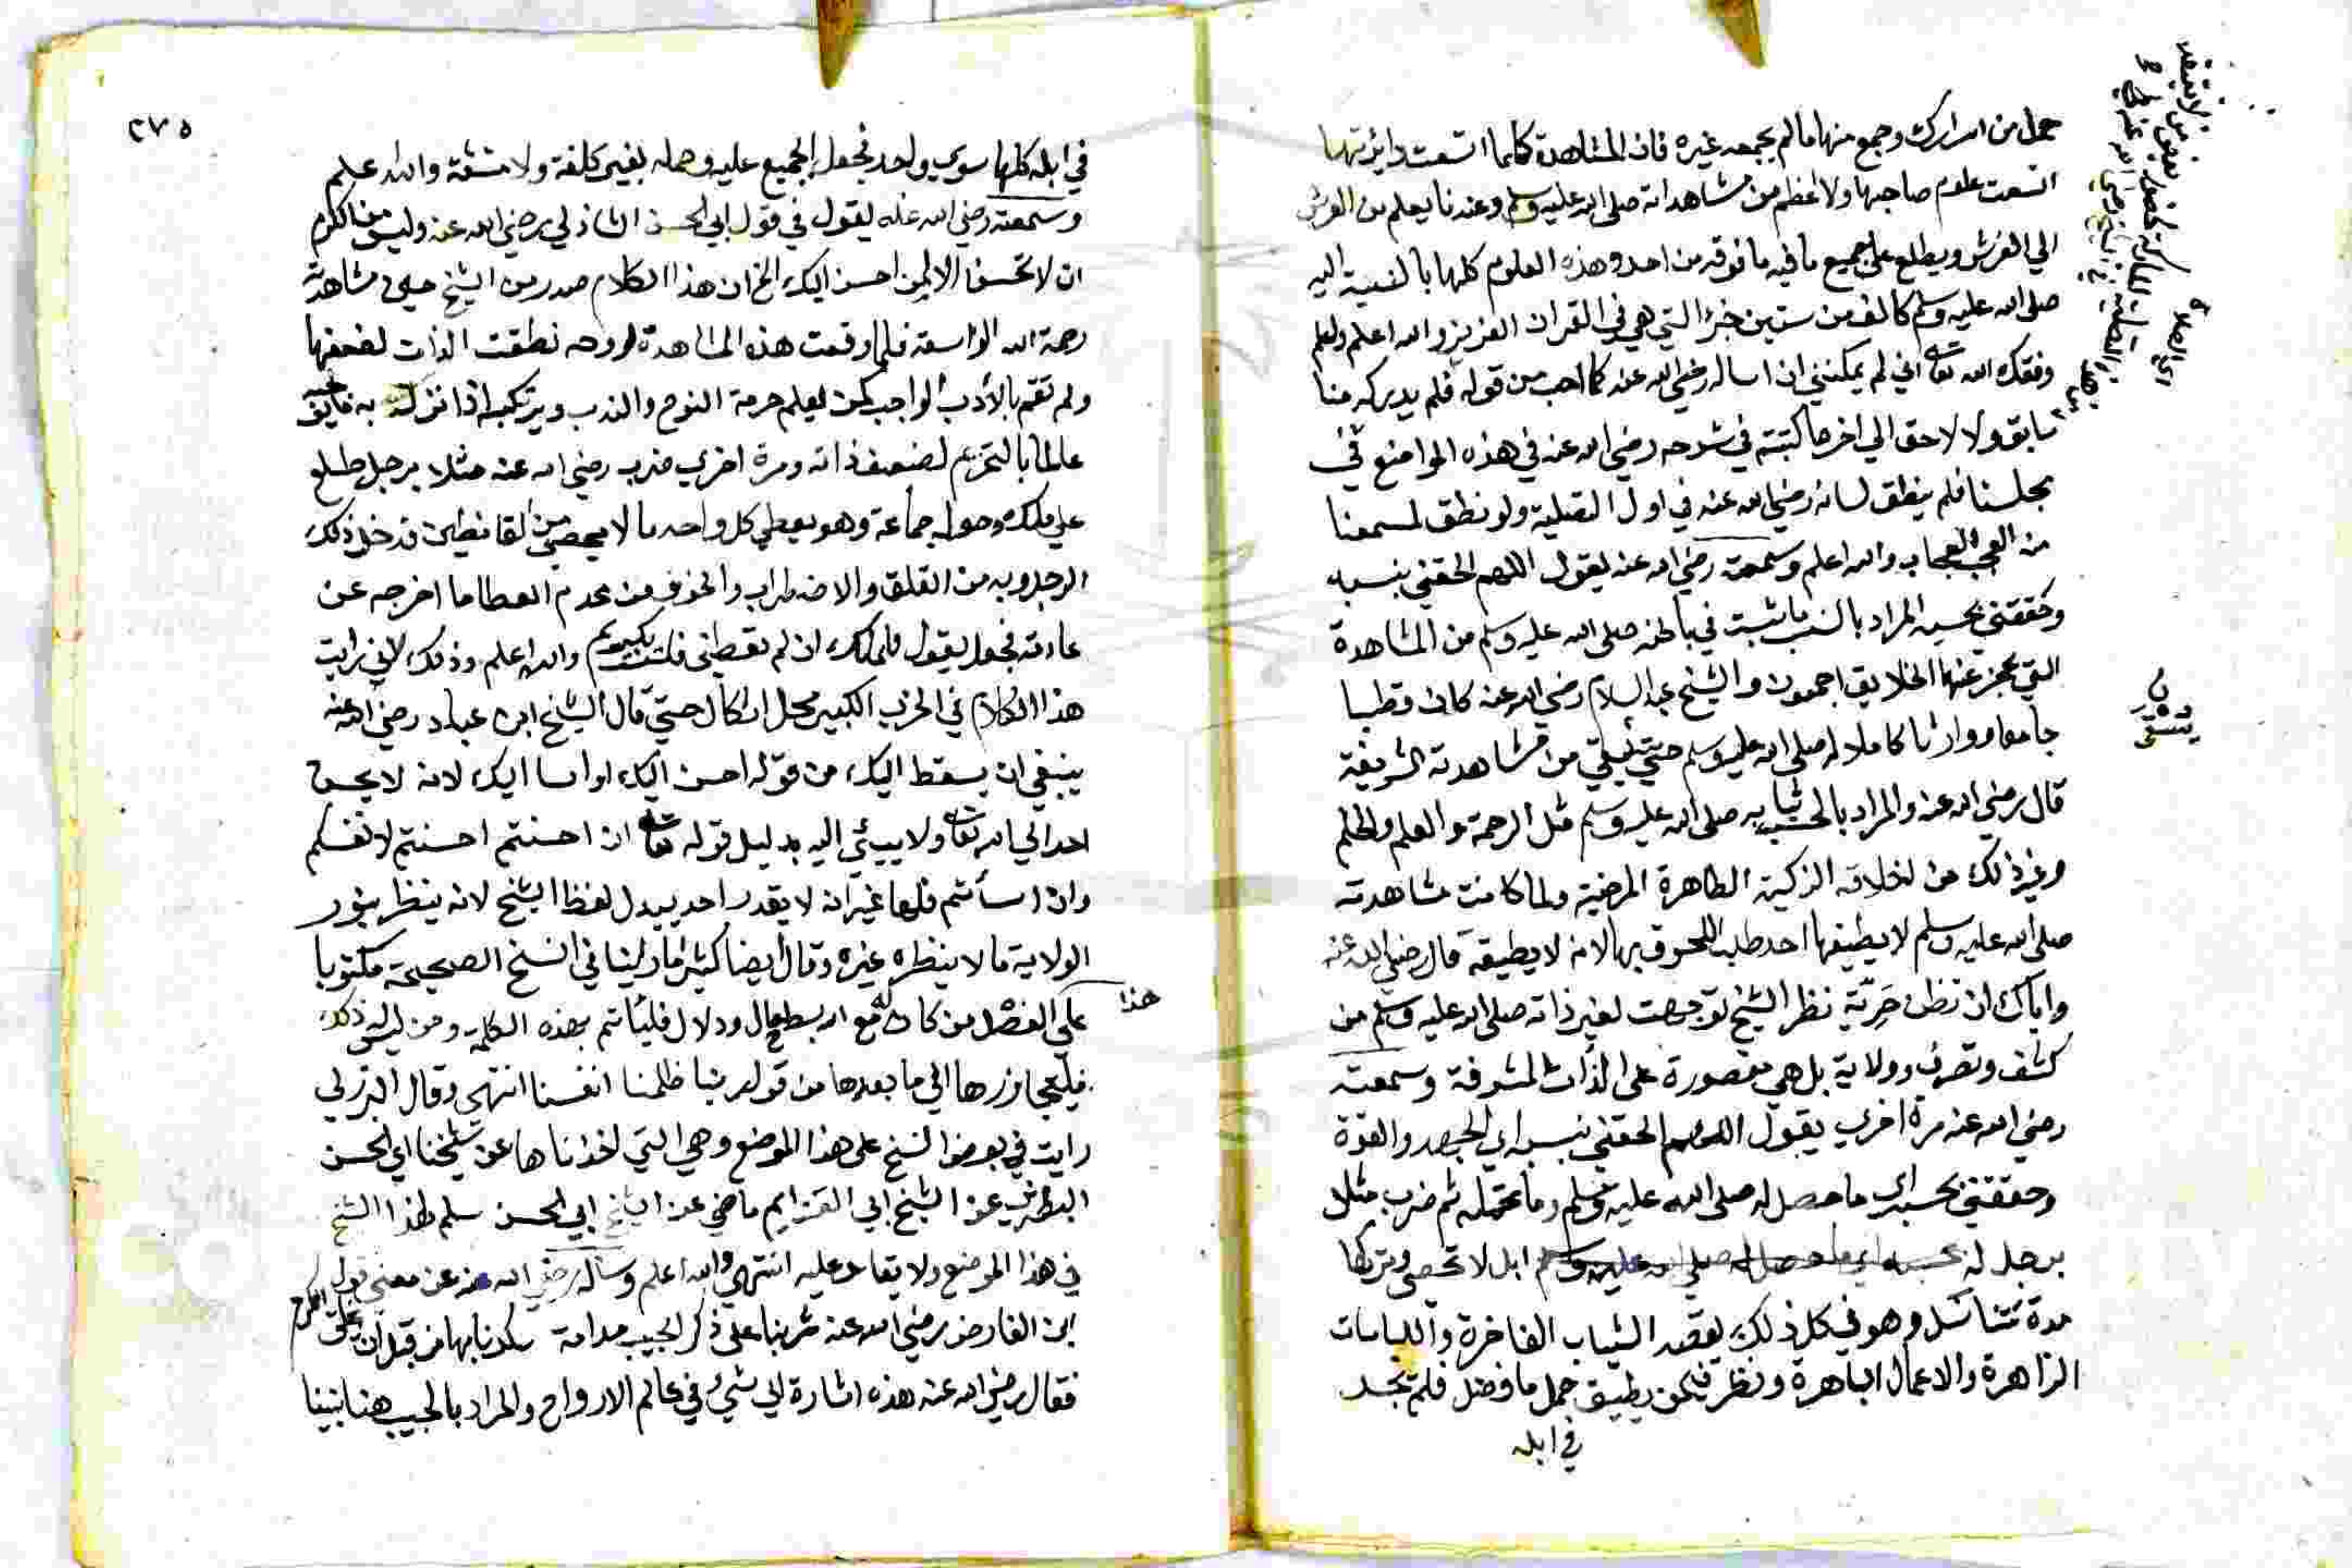 حمل من اسرارك وجمع منها مالم يجمعه غيره فان المشاهدة كلما اتسعت دايرتها
اتسعت علوم صاحبها ولا اعظم من مشاهداته صلى الله عليه وسلم وعندنا يعلم من العرش
الي الفرش ويطلع على جميع ما فيه ما فوقه من احد وهذه العلوم كلها بالنسبة اليه
صلى الله عليه وسلم كالف من ستين حزبا التي هي في القران العزيز والله اعلم ولعلم
وفقك الله تعالى اني لم يمكنني ان اساله رضي الله عنه كما احب من قوله فلم يدركه منا
سابق ولا لاحق الي اخر ما كتبته في شرحه رضي الله عنه في هذه المواضع في
مجلسنا فلم ينطق لسانه رضي الله عنه في اول التصلية ولو نطق لسمعنا
من العجب العجاب والله اعلم وسمعته رضي الله عنه يقول اللهم الحقني بنسبه
وحققني بحسبه المراد بالنسب ما ثبت في باطنه صلى الله عليه وسلم من المشاهدة
التي عجز عنها الخلايق اجمعون والشيخ عبد السلام رضي الله عنه كان قطبا
جامعا وارثا كاملا له صلى الله عليه وسلم حتى من مشاهدته الشريفة
قال رضي الله عنه والمراد بالحسب صلى الله عليه وسلم مثل الرحمة والعلم والحلم
وغير ذلك من اخلاقه الزكية الطاهرة المرضية ولما كانت مشاهدته
صلى الله عليه وسلم لا يطيقها احد طلب اللحوق بها لانه لا يطيقه قال رضي الله عنه
واياك ان تظن نظر الشيخ توجهت لغير ذاته صلى الله عليه وسلم من
كشف وتصرف وولاية بل هي مقصورة على الذات المشرفة وسمعته
رضي الله عنه مرة اخرى يقول اللهم الحقني بنسبه اي الجهد والقوة
وحققني بحسبه اي ما حصل له صلى الله عليه وسلم وما تحمله ثم ضرب مثلا
برجل له ابل لا تحصى وتركها
مدة تتناسل وهو في كل ذلك يعقد الثياب الفاخرة واللباسات
الزاهرة والاعمال الباهرة ونظر فيمن يطيق حمل ما فضل فلم يجد
في ابله
٢٧٥
في ابله كلها سوي واحد فجعل الجميع عليه وحمله بغير كلفة ولا مشقة والله اعلم
وسمعته رضي الله عنه يقول في قول ابي الحسن الشاذلي رضي الله عنه وليس من الكرم
ان لا تحسن الا لمن احسن اليك الخ ان هذا الكلام صدر من الشيخ حين مشاهدة
رحمة الله الواسعة فلما وقعت هذه المشاهدة لروحه نطقت الذات لضعفها
ولم تقم بالأدب الواجب كمن يعلم حرمة النوح والندب ويرتكبه اذا نزلت به
عالما بالتحريم لضعف ذاته ومرة اخرى ضرب رضي الله عنه مثلا برجل طلع
على ملك وحوله جماعة وهو يعطي كل واحد ما لا يحصى من القناطير فدخل ذلك
الرجل وبه من القلق والاضطراب والخوف من عدم العطا ما اخرجه عن
عادته فجعل يقول للملك ان لم تعطني فلست بكريم والله اعلم وذلك لاني رايت
هذا الكلام في الحزب الكبير محل اشكال حتى قال الشيخ ابن عباد رضي الله عنه
ينبغي ان يسقط اليك من قوله احسن اليك او اسا اليك لانه لا يحسن
احد الي الله تعالى ولا يسيئي اليه بدليل قوله تعالى ان احسنتم احسنتم لانفسكم
وان اسأتم فلها غير انه لا يقدر احد يبدل لفظ الشيخ لانه ينظر بنور
الولاية ما لا ينظره غيره وقال ايضا كثيرا ما رايينا في النسخ الصحيحة مكتوبا
هذا
على الفضل من كان له مع الله بسط حال ودلال فليأتم بهذه الكلمة ومن ليس له ذلك
فليتجاوزها الي ما بعدها من قوله ربنا ظلمنا انفسنا انتهى وقال البرزلي
رايت في بعض النسخ على هذا الموضع وهي التي اخذناها عن شيخنا ابي الحسن
البطرني عن الشيخ ابي العزايم ماضي عن الشيخ ابي الحسن سلم لهذا الشيخ
في هذا الموضع ولا يقاعد عليه انتهى والله اعلم وسالته رضي الله عنه عن معنى قول
ابن الفارض رضي الله عنه شربنا على ذكر الحبيب مدامة سكرنا بها من قبل ان تخلق الكرم
فقال رضي الله عنه هذه اشارة الي شيء في عالم الارواح والمراد بالحبيب هنا نبينا